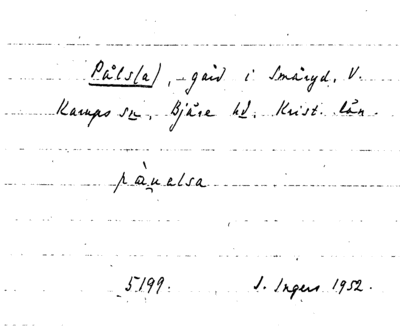 Påls(a), gård i Småryd, V.
Karups sn, Bjäre hd. Krist. län.
pàu̯elsa
5199. I. Ingers 1952.